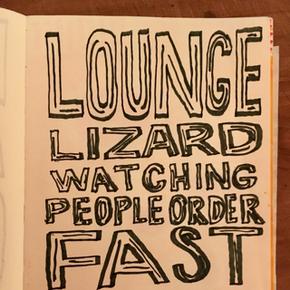 LOUNGE
LIZARD
WATCHING
PEOPLE ORDER
FAST